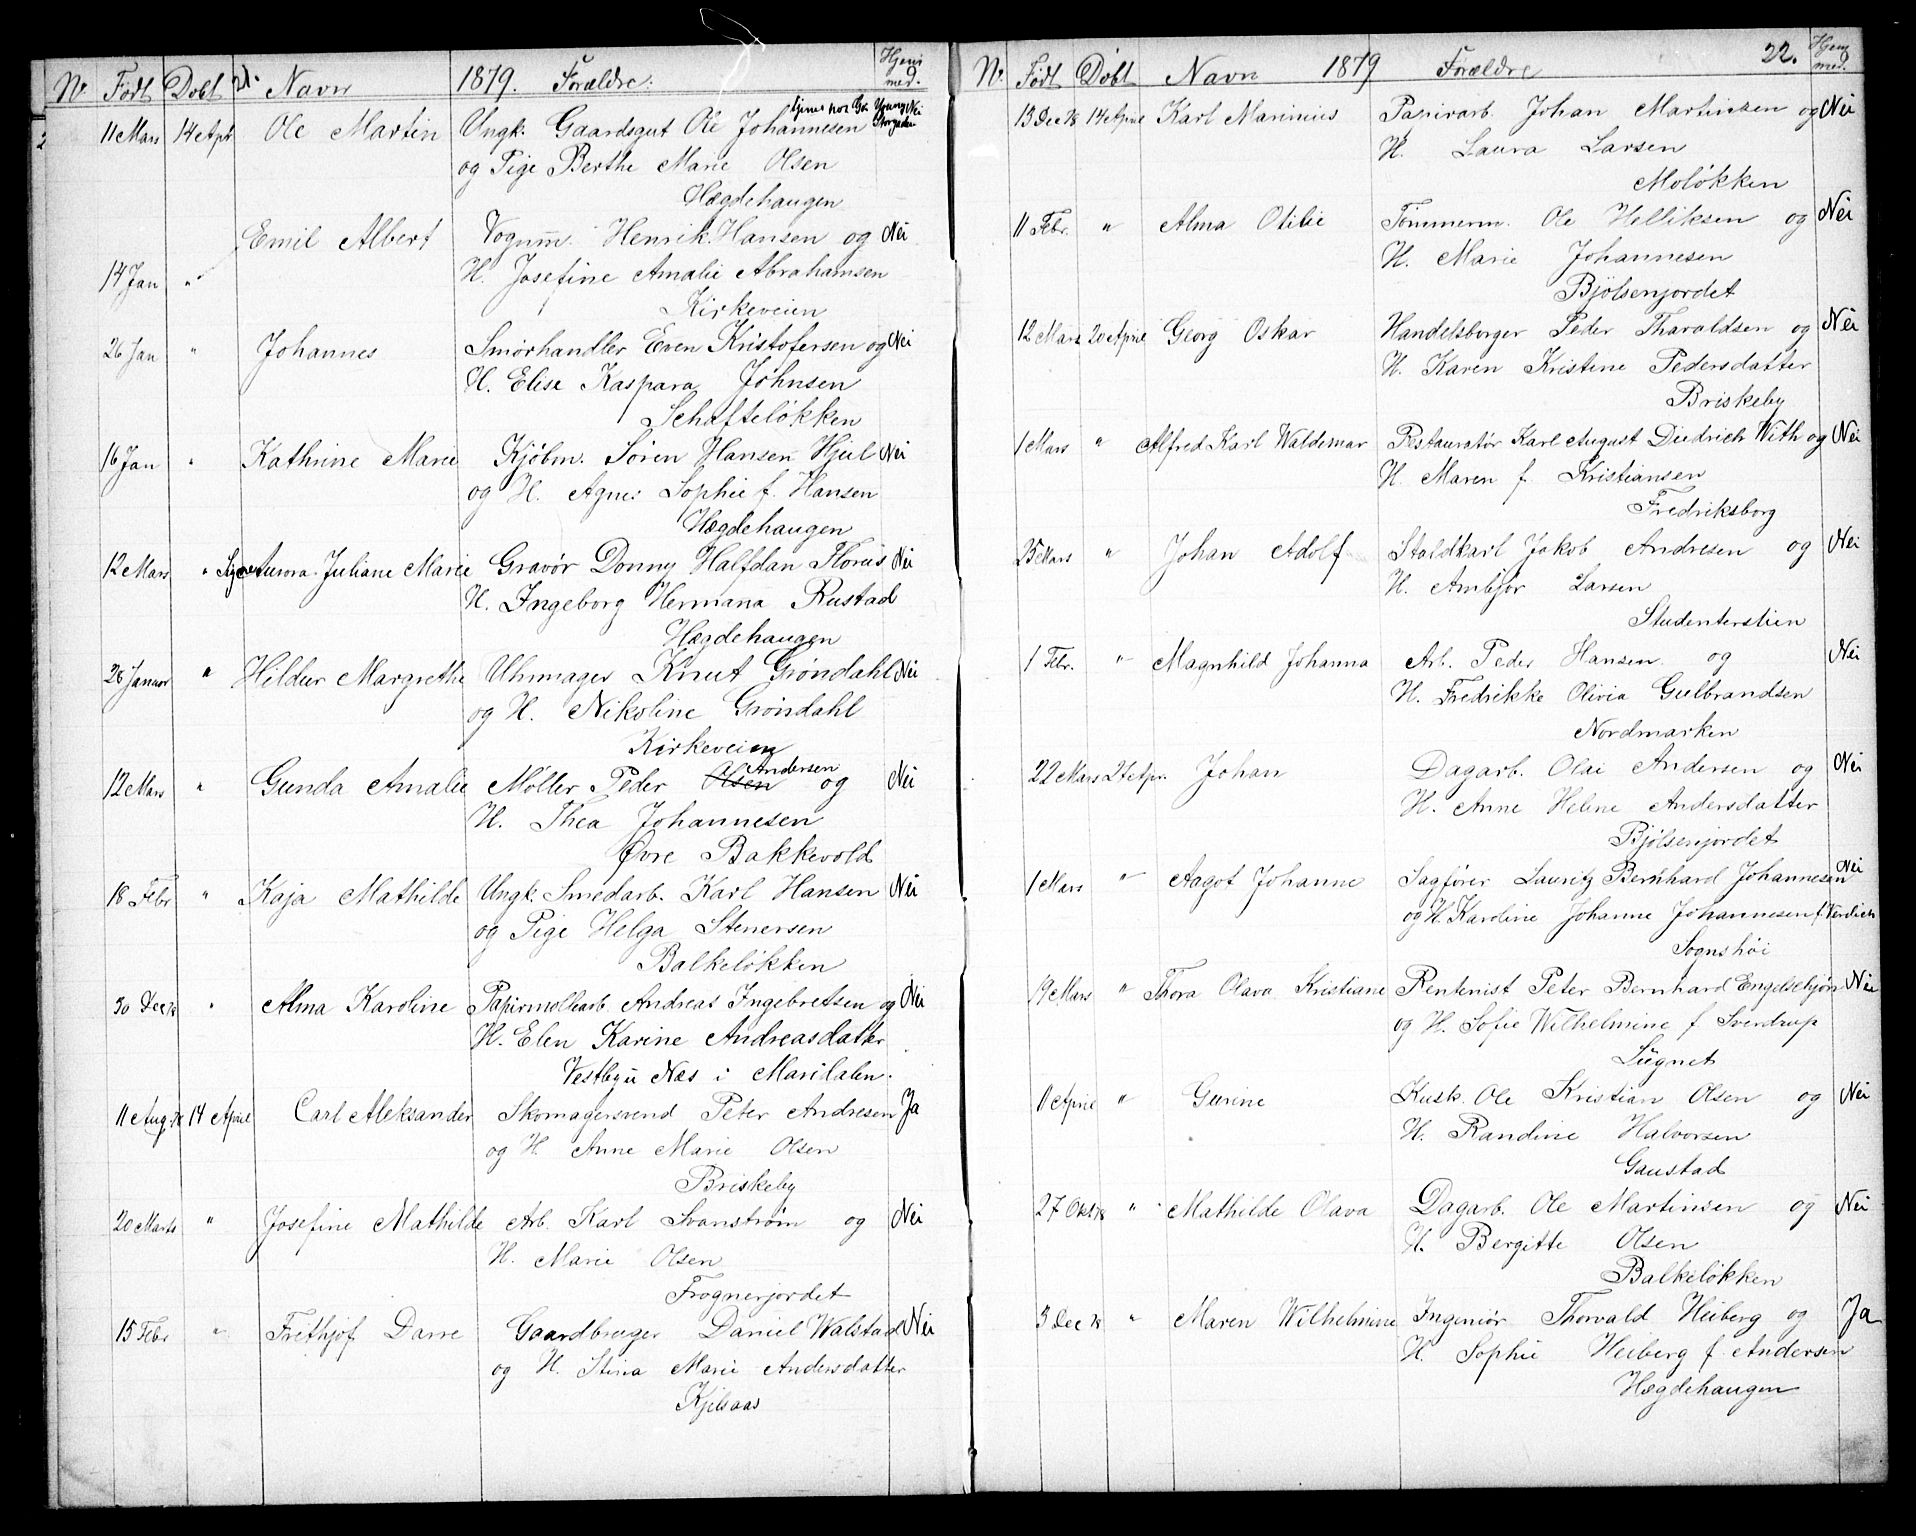 N. Født Døbt 21. Navn 1879. Forældre: Hjem med.
11 Mars 14 Apr. Ole Martin Ungk. Gaardsgut Ole Johannesen tjener hos Gr. Young Storgaden Nei
og Pige Berthe Marie Olsen
Hægdehaugen
Emil Albert Vognm. Henrik Hansen og Nei
14 Jan " H. Josefine Amalie Abrahamsen
Kirkeveien
26 Jan " Johannes Smørhandler Even Kristofersen og Nei
H. Elise Kaspara Johnsen
Schafteløkken
16 Jan " Kathrine Marie Kjøbm. Søren Hansen Hjul Nei
og H. Agnes Sophie f. Hansen
Hægdehaugen
12 Mars " Signe Aurora Juliane Marie Gravør Donny Halfdan Florus Nei
H. Ingeborg Hermana Rustad
Hægdehaugen
26 Januar " Hildur Margrethe Uhrmager Knut Grøndahl Nei
og H. Nikoline Grøndahl
Kirkeveien
12 Mars " Gunda Amalie Møller Peder Olsen Andersen og Nei
H. Thea Johannesen
Øvre Bakkevold
18 Febr " Kaja Mathilde Ungk. Smedarb. Karl Hansen Nei
og Pige Helga Stenersen
Balkeløkken
30 Dec 78 " Alma Karoline Papirmøllearb. Andreas Ingebretsen og Nei
H. Elen Karine Andreasdatter
Vestbyu Næs i Maridalen.
11 Aug. 78 14 April Carl Aleksander Skomagersvend Peter Andresen Ja
og H. Anne Marie Olsen
Briskeby
20 Marts " Josefine Mathilde Arb. Karl Svanstrøm og Nei
H. Marie Olsen
Frognerjordet
15 Febr " Frithjof Darre Gaardbruger Daniel Walstad Nei
og H. Stina Marie Andersdatter
Kjelsaas
N. Født Døbt Navn 1879 Forældre 22. Hjem med.
13 Dec 78 14 April Karl Marinius Papirarb. Johan Martinsen og Nei
H. Laura Larsen
Moløkken
11 Febr. " Alma Otilie Tømmerm. Ole Helliksen og Nei
H. Marie Johannesen
Bjølsenjordet
12 Mars 20 April Georg Oskar Handelsborger Peder Tharaldsen og Nei
H. Karen Kristine Pedersdatter
Briskeby
1 Mars " Alfred Karl Waldemar Restauratør Karl August Diedrich With og Nei
H. Maren f. Kristiansen
Fredriksborg
25 Mars " Johan Adolf Staldkarl Jakob Andresen og Nei
H. Ambjør Larsen
Studenterstien
1 Febr. " Magnhild Johanna Arb. Peder Hansen og Nei
H. Fredrikke Olivia Gulbrandsen
Nordmarken
22 Mars 27 Apr. Johan Dagarb. Olai Andersen og Nei
H. Anne Helene Andersdatter
Bjølsenjordet
1 Mars " Aagot Johanne Sagfører Lauritz Bernhard Johannesen Nei
og H. Karoline Johanne Johannesen f.
Sognshøi
19 Mars " Thora Olava Kristiane Rentenist Peter Bernhard Engelsebjørn Nei
og H. Sofie Wilhelmine f Sverdrup
Lügnet
11 April " Gurine Kusk. Ole Kristian Olsen og Nei
H. Randine Halvorsen
Gaustad
27 Okt 78 " Mathilde Olava Dagarb. Ole Martinsen og Nei
H. Bergitte Olsen
Balkeløkken
3 Dec 78 " Maren Wilhelmine Ingeniør Thorvald Heiberg og Ja
H. Sophie Heiberg f. Andersen
Hægdehaugen